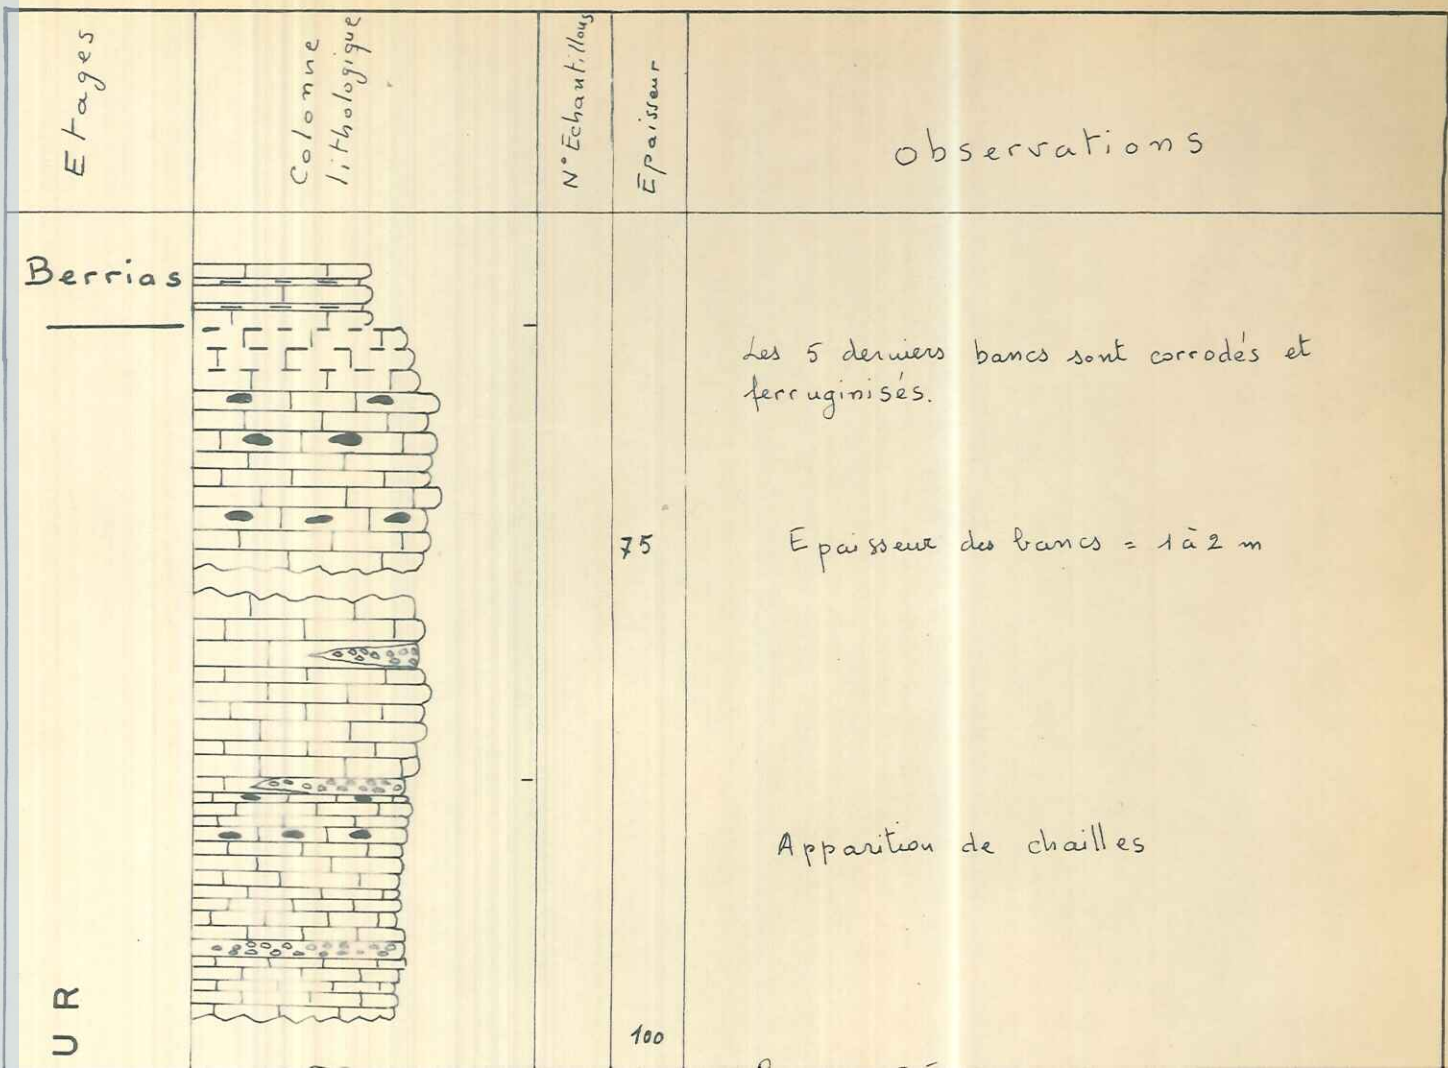 Etages
Colonne
lithologique
N° Echantillons
Epaisseur
observations
Berrias
Les 5 derniers bancs sont corrodés et
ferruginisés.
75
Epaisseur des bancs = 1 à 2 m
Apparition de chailles
UR
100